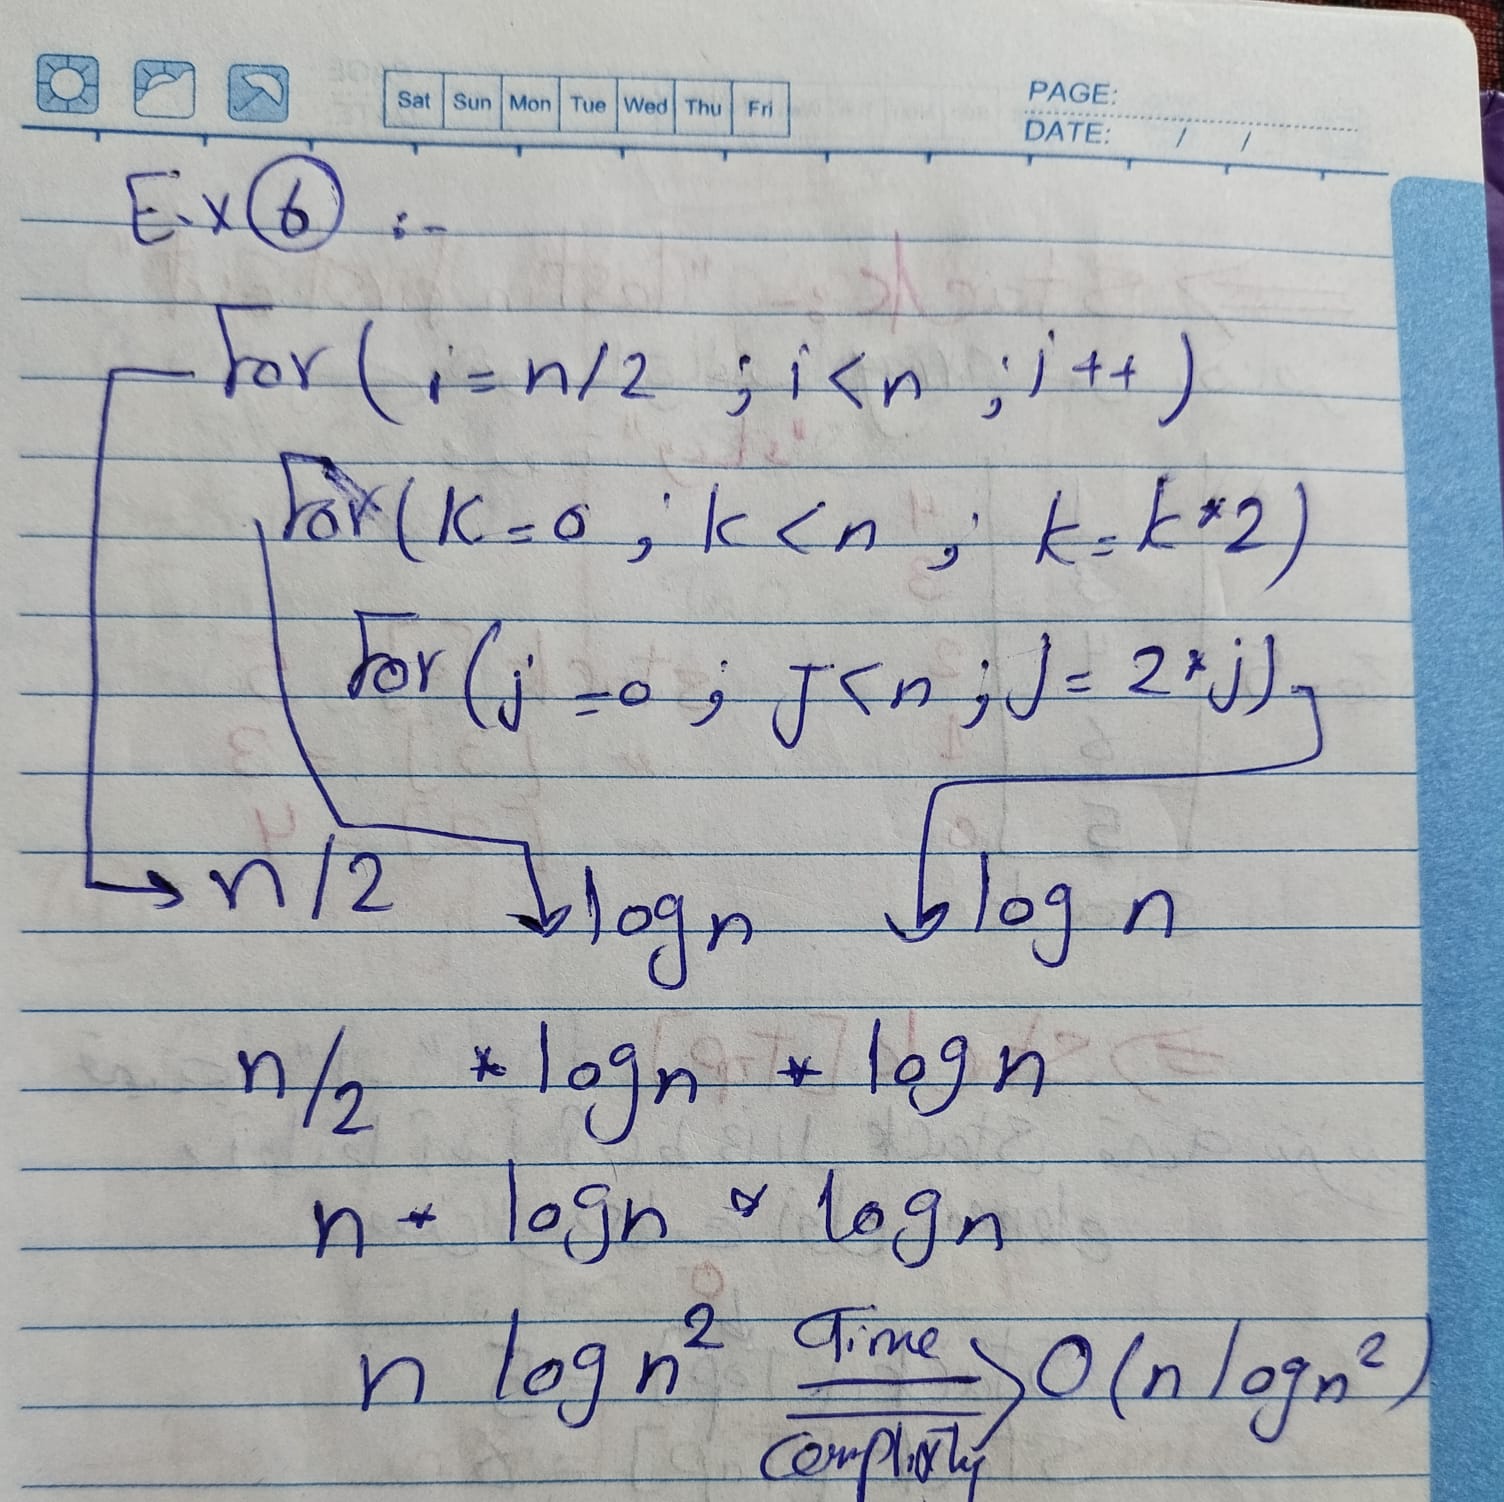 Sat Sun Mon Tue Wed Thu Fri
PAGE:
DATE: / /
Ex 6 :-
for ( i = n/2 ; i < n ; i ++ )
for ( K = 0 ; k < n ; k = k * 2 )
for ( j = 0 ; J < n ; J = 2 * j )
n/2 log n log n
n/2 * log n * log n
n * log n * log n
n log n² Time O(n log n²)